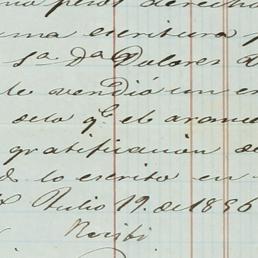 una pesos derecho
una escritura p
Sª Dª Dolores R
le vendió un en
dela qᵉ el arance
gratificación de
d lo escrito en
Julio 19. de 1896
Recibi